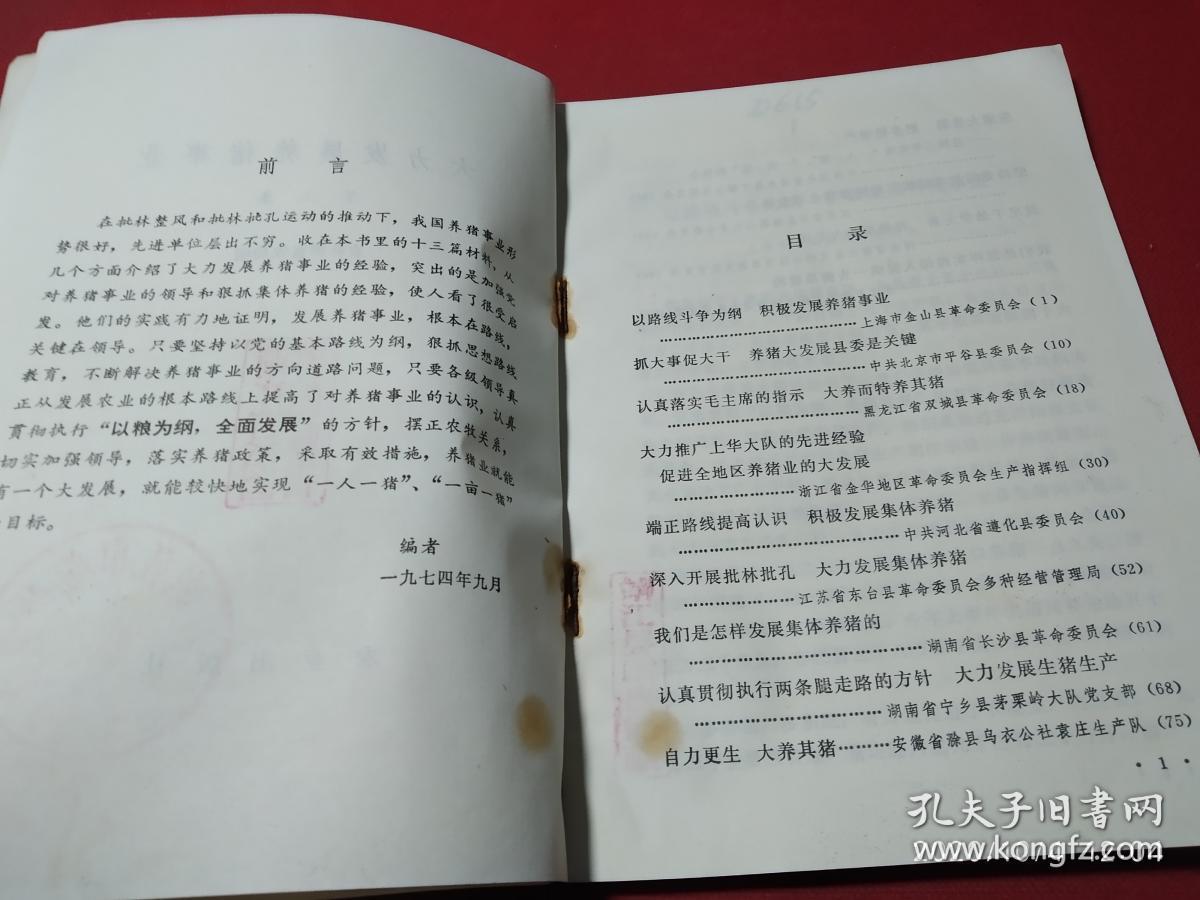 前言
在批林整风和批林批孔运动的推动下，我国养猪事业形
势很好，先进单位层出不穷。收在本书里的十三篇材料，从
几个方面介绍了大力发展养猪事业的经验，突出的是加强党
对养猪事业的领导和狠抓集体养猪的经验，使人看了很受启
发。他们的实践有力地证明，发展养猪事业，根本在路线，
关键在领导。只要坚持以党的基本路线为纲，狠抓思想路线
教育，不断解决养猪事业的方向道路问题，只要各级领导真
正从发展农业的根本路线上提高了对养猪事业的认识，认真
贯彻执行“以粮为纲，全面发展”的方针，摆正农牧关系，
切实加强领导，落实养猪政策，采取有效措施，养猪业就能
有一个大发展，就能较快地实现“一人一猪”、“一亩一猪”
目标。
编者
一九七四年九月
D615
目录
以路线斗争为纲 积极发展养猪事业
……………………………………上海市金山县革命委员会（1）
抓大事促大干 养猪大发展县委是关键
……………………………………中共北京市平谷县委员会（10）
认真落实毛主席的指示 大养而特养其猪
……………………………………黑龙江省双城县革命委员会（18）
大力推广上华大队的先进经验
促进全地区养猪业的大发展
……………………浙江省金华地区革命委员会生产指挥组（30）
端正路线提高认识 积极发展集体养猪
……………………………………中共河北省遵化县委员会（40）
深入开展批林批孔 大力发展集体养猪
…………………江苏省东台县革命委员会多种经营管理局（52）
我们是怎样发展集体养猪的
……………………………………湖南省长沙县革命委员会（61）
认真贯彻执行两条腿走路的方针 大力发展生猪生产
……………………………湖南省宁乡县茅栗岭大队党支部（68）
自力更生 大养其猪………安徽省滁县乌衣公社袁庄生产队（75）
·1·
孔夫子旧书网
www.kongfz.com